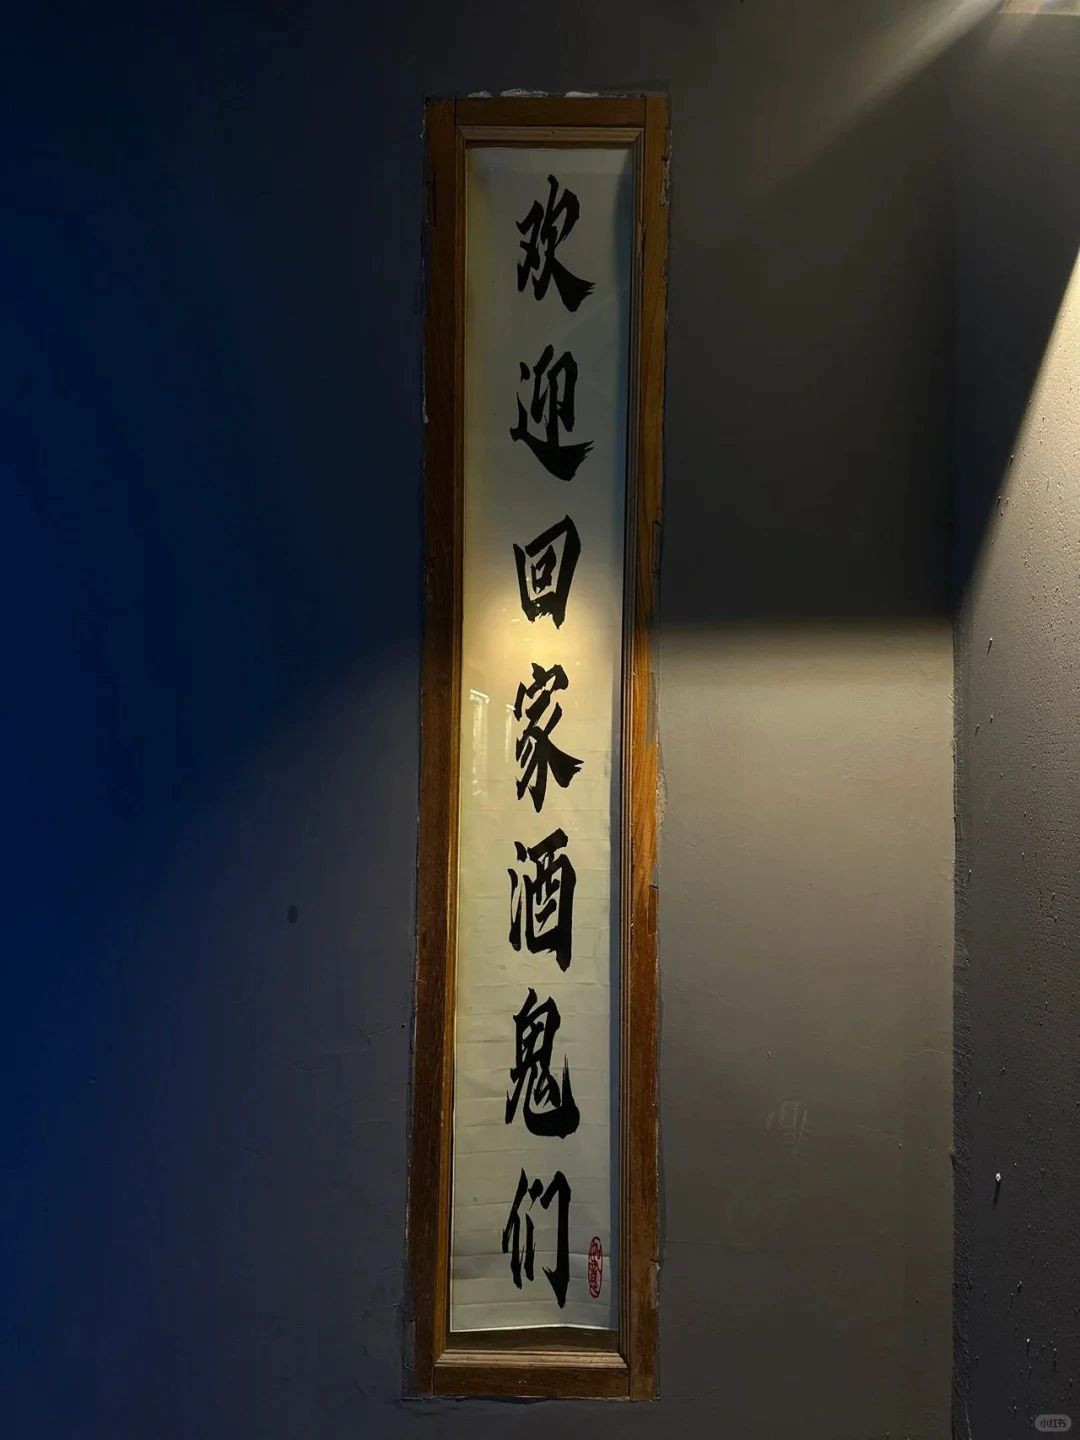 欢迎回家酒鬼们
小红书